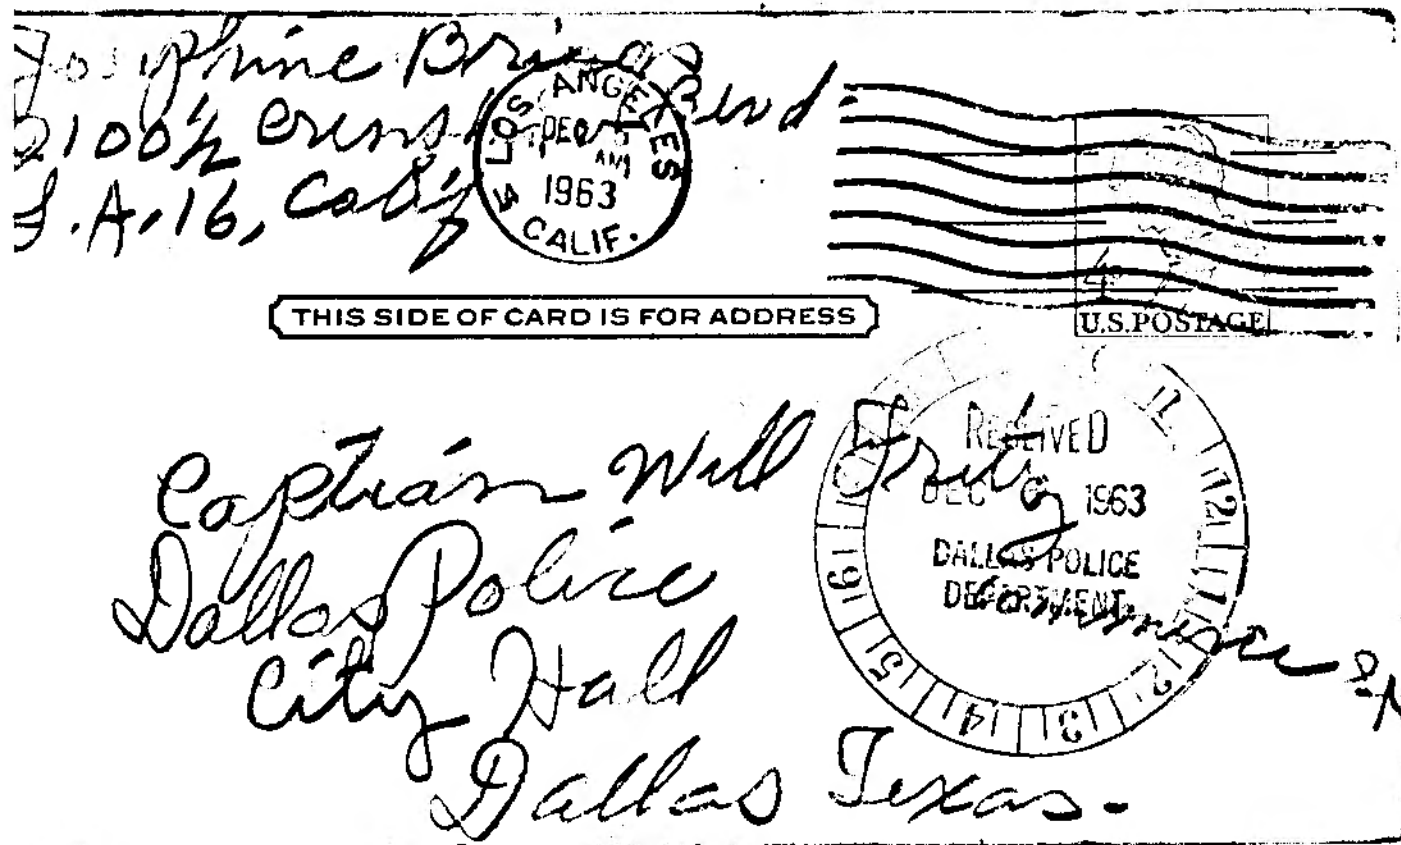 Josephine Briggs
2100½ Crenshaw Blvd.
L.A. 16, Calif
LOS ANGELES
DEC
AM
1963
CALIF.
4¢
U.S.POSTAGE
THIS SIDE OF CARD IS FOR ADDRESS
RECEIVED
DEC 1963
DALLAS POLICE
DEPARTMENT
12
11
2
3
14
15
Captian Will Fritz
Dallas Police
Commerce St
City Hall
Dallas Texas.